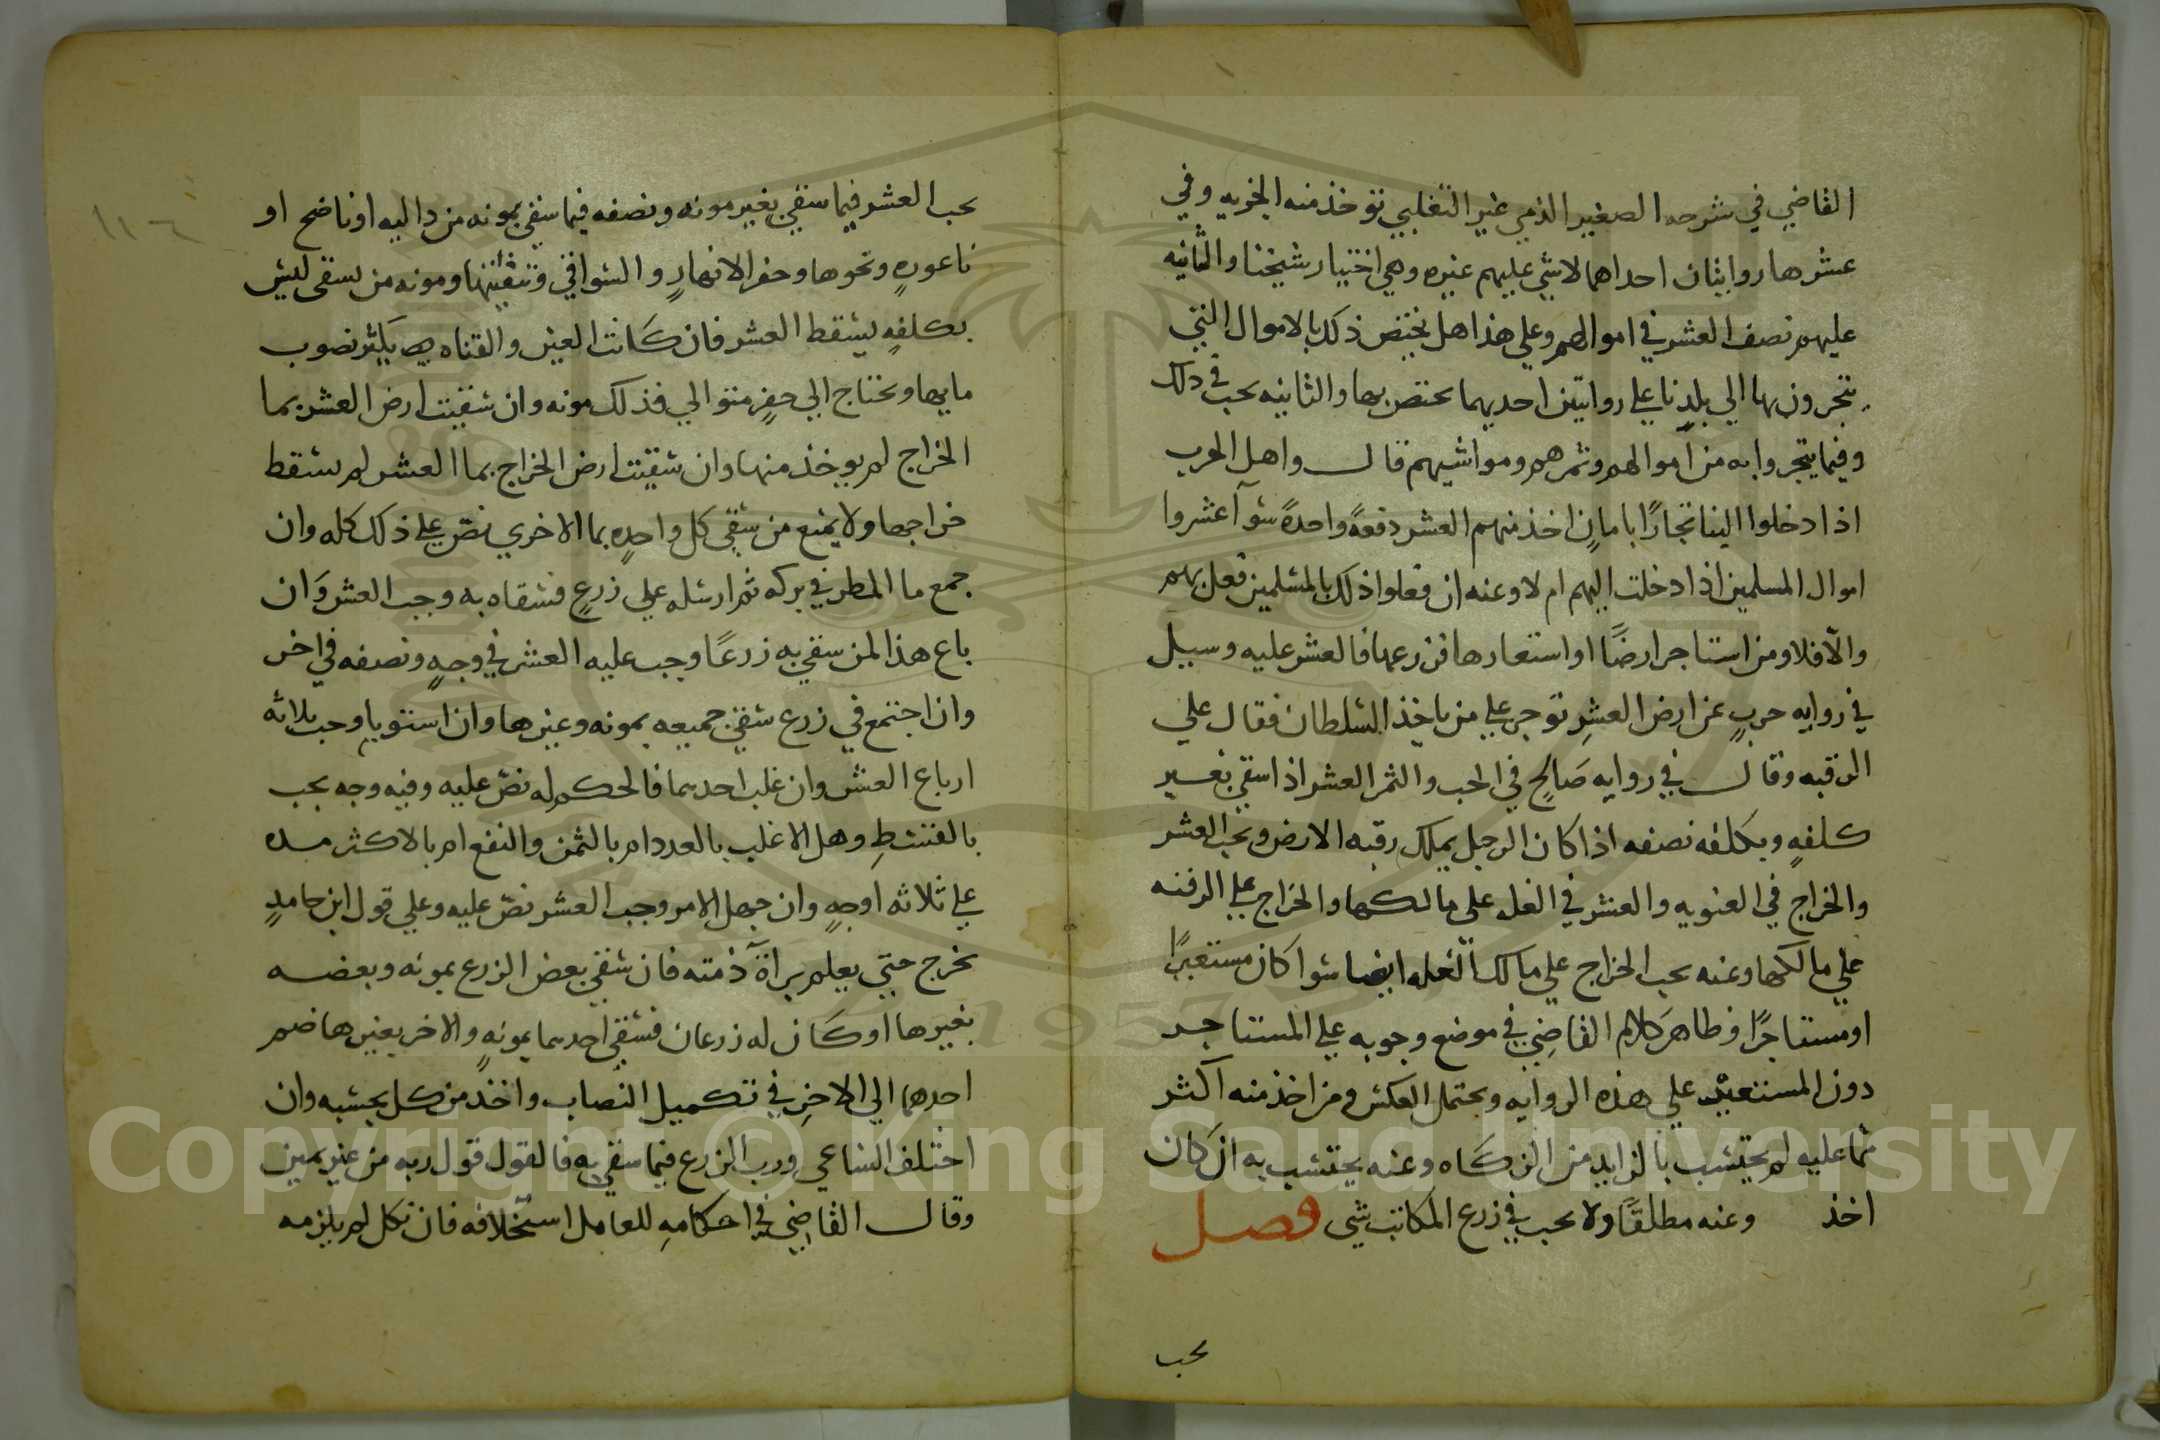 القاضي في شرحه الصغير الذمي غير التغلبي توخذ منه الجزيه وفي
عشرها روايتان احداهما لا شي عليهم غيره وهي اختيار شيخنا والثانيه
عليهم نصف العشر في اموالهم وعلي هذا هل يختص ذلك بالاموال التي
يتجرون بها الي بلدنا علي روايتين احديهما يختص بها والثانيه يجب في ذلك
وفيما يتجروا به من اموالهم وثمرهم ومواشيهم قال واهل الحرب
اذا دخلوا الينا تجارًا بامانٍ اخذ منهم العشر دفعةً واحدةً سوآ عشروا
اموال المسلمين اذا دخلت اليهم ام لا وعنه ان فعلوا ذلك بالمسلمين فعل بهم
والّا فلا ومن استاجر ارضًا او استعارها فزرعها فالعشر عليه وسيل
في روايه حربٍ عن ارض العشرِ توجر علي من ياخذ السلطان فقال علي
الرقبه وقال في روايه صَالحٍ في الحب والثمر العشر اذا سقي بغير
كلفهٍ وبكلفه نصفه اذا كان الرجل يملك رقبه الارض ويجب العشر
والخراج في العنويه والعشر في الغله علي مالكها والخراج علي الرقبه
علي مالكها وعنه يجب الخراج علي مالك الغله ايضا سوا كان مستعيرًا
او مستاجرًا وظاهر كلام القاضِي في موضع وجوبه علي المستاجر
دون المستعير علي هذه الروايه ويحتمل العكس ومن اخذ منه اكثر
مما عليه لم يحتسب بالزايد من الزكاه وعنه يحتسب به ان كان
اخذ وعنه مطلقًا ولا يجب في زرع المكاتب شي فصل
يجب
١١٦
يجب العشر فيما سقي بغير مونه ونصفه فيما سقي بمونه من داليه او ناضح او
ناعورهٍ ونحوها وحفر الانهارِ والسواقي وتنقيتها ومونه من يسقي ليس
بكلفهٍ يسقط العشر فان كانت العين والقناه يكثر نضوب
مايها وتحتاج الي حفرٍ متوالي فذلك مونه وان سقيت ارض العشر بما
الخراج لم يوخذ منها وان سقيت ارض الخراج بما العشر لم يسقط
خراجها ولا يمنع من سقي كل واحدهٍ بما الاخري نصّ علي ذلك كله وان
جمع ما المطر في بركه ثم ارسله علي زرعٍ فسقاه به وجب العشر وَان
باع هذا لمن سقي به زرعًا وجب عليه العشر في وجهٍ ونصفه في اخر
وان اجتمع في زرع سقي جميعه بمونه وغيرها وان استويا وجب ثلاثه
ارباع العشر وان غلب احدهما فالحكم له نصّ عليه وفيه وجه يجب
بالقسطِ وهل الاغلب بالعدد ام بالثمن والنفع ام بالاكثر مده
علي ثلاثه اوجهٍ وان جهل الامر وجب العشر نصّ عليه وعلي قول ابن حامدٍ
يخرج حتي يعلم براة ذمته فان سقي بعض الزرع بمونه وبعضه
بغيرها او كان له زرعان فسقي احدهما بمونهٍ والاخر بغيرها ضم
احدهما الي الاخرِ في تكميل النصاب واخذ من كل بحسبه وان
اختلف الساعي ورب الزرع فيما سقي به فالقول قول ربه من غير يمين
وقال القاضي في احكامهِ للعامل استحلافه فان نكل لم يلزمه
Copyright © King Saud University